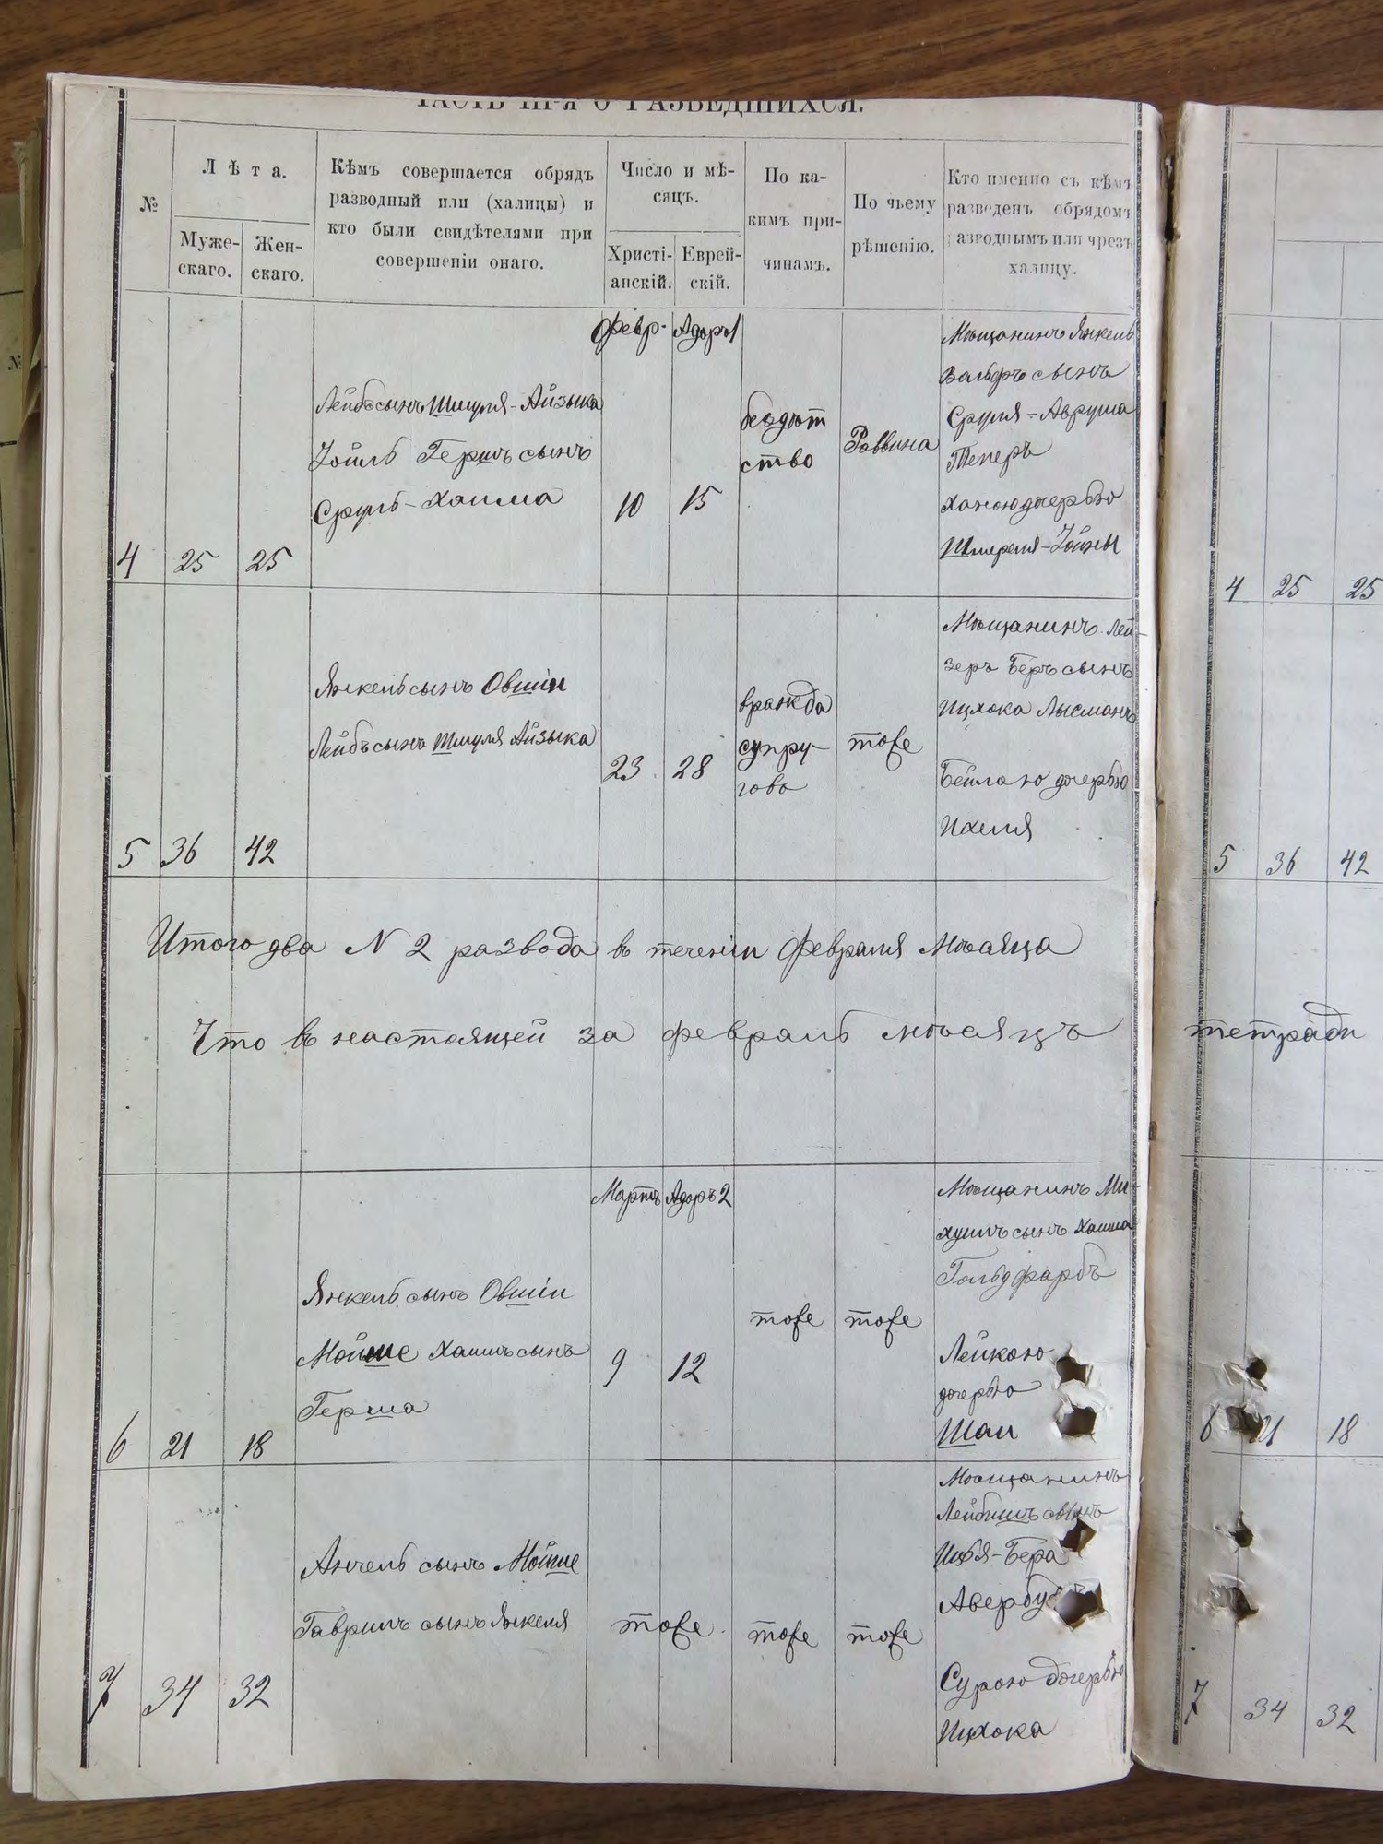 ЧАСТЬ III-я О РАЗВЕДШИХСЯ.
№
Лѣта.
Муже-
скаго.
Жен-
скаго.
Кѣмъ совершается обрядъ
разводный или (халицы) и
кто были свидѣтелями при
совершеніи онаго.
Число и мѣ-
сяцъ.
Христі-
анскій.
Еврей-
скій.
По ка-
кимъ при-
чинамъ.
По чьему
рѣшенію.
Кто именно съ кѣмъ
разведенъ обрядомъ
разводнымъ или чрезъ
халицу.
4
25
25
Лейбъ сынъ Шмуля-Айзыка
Іойлъ Гершъ сынъ
Сруль-Хаима
Февр.
10
Адаръ 1
15
бездѣт
ство
Раввина
Мѣщанинъ Янкель
Вольфъ сынъ
Сруля-Аврума
Теперъ
Ханою дочерью
Шмереля-Іойны
5
36
42
Янкель сынъ Овшіи
Лейбъ сынъ Шмуля Айзыка
23
28
вражда
супру-
гово
тоже
Мѣщанинъ Лей-
зеръ Беръ сынъ
Ицхока Лысманъ
Бейлою дочерью
Ихеля
Итого два N 2 развода въ теченіи Февраля Мѣсяца
Что въ настоящей за февраль мѣсяцъ
6
21
18
Янкель сынъ Овшіи
Мойше Хаимъ сынъ
Герша
Мартъ
9
Адаръ 2
12
тоже
тоже
Мѣщанинъ Ми-
хулъ сынъ Хаима
Гольдфарбъ
Лейкою
дочерью
Шаи
7
34
32
Анчель сынъ Мойше
Гаврилъ сынъ Янкеля
тоже.
тоже
тоже
Мѣщанинъ
Лейбишъ сынъ
Ицхока
Сурою дочерью
4
25
25
5
36
42
тетради
6
21
18
7
34
32